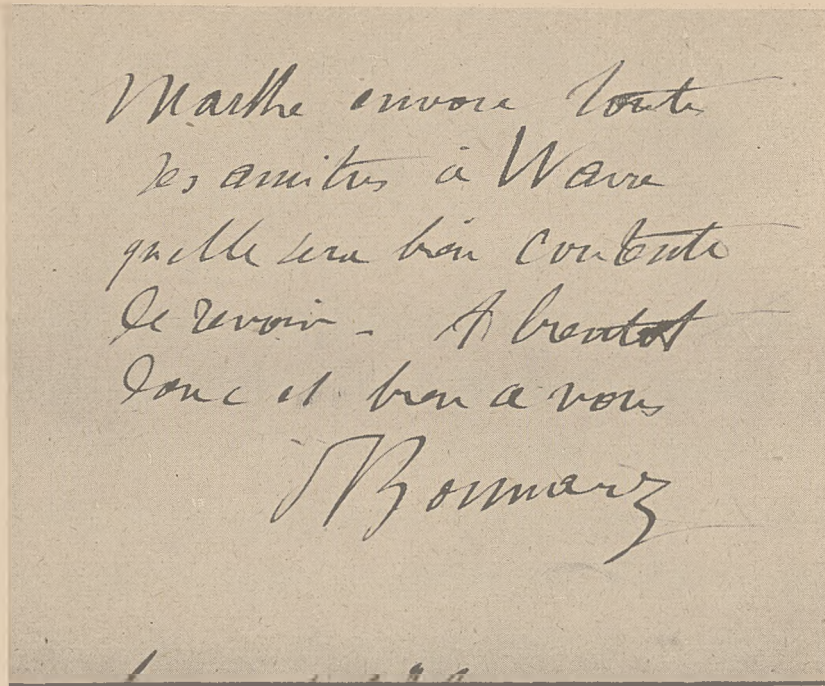 Marthe envoie toutes
ses amitiés à Wava
qu'elle sera bien contente
de revoir - A bientot
donc et bien a vous
PBonnard